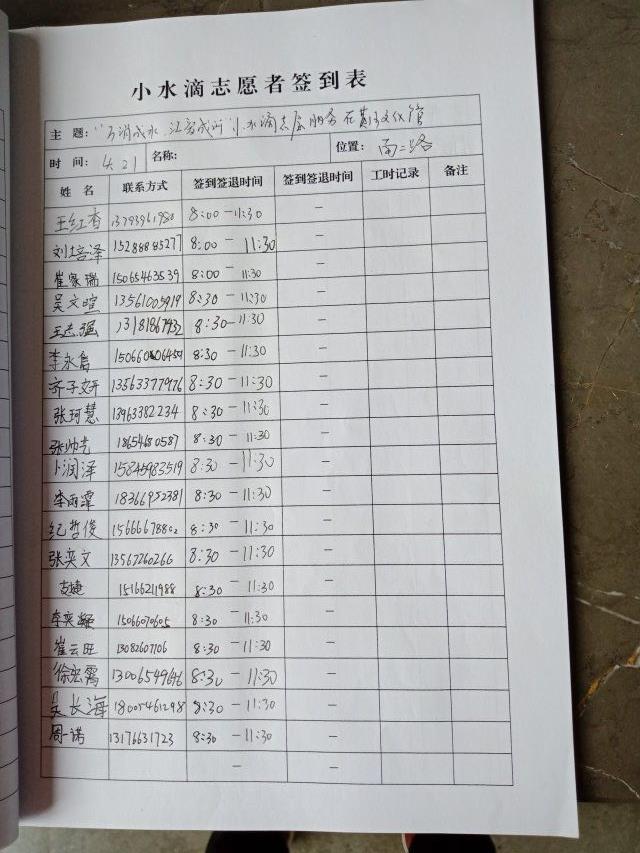 小水滴志愿者签到表
主 题: 小水滴志愿服务在
时 间: 4.21 名称: 位置: 南二路
姓 名 联系方式 签到签退时间 签到签退时间 工时记录 备注
王红香 13793961980 8:00-11:30 -
刘培泽 15288885277 8:00-11:30 -
崔家瑞 15065463539 8:00-11:30 -
吴文暄 13561005919 8:30-11:30 -
王志强 8:30-11:30 -
李永 8:30-11:30 -
齐子妍 13563377976 8:30-11:30 -
张珂慧 13963382234 8:30-11:30 -
张帅光 18654680587 8:30-11:30 -
卜润泽 15845983519 8:30-11:30 -
李雨霏 18366952381 8:30-11:30 -
纪哲俊 15666678802 8:30-11:30 -
张奕文 13567260266 8:30-11:30 -
支婕 15166211988 8:30-11:30 -
李奕凝 15066070605 8:30-11:30 -
崔云旺 13082607106 8:30-11:30 -
徐宏霭 13006549646 8:30-11:30 -
吴长海 18005461298 8:30-11:30 -
周一诺 13176631723 8:30-11:30 -
- -